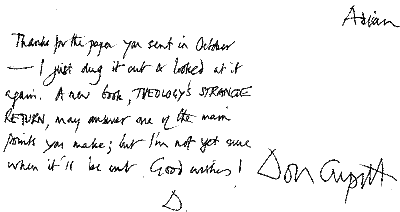 Adrian
Thanks for the paper you sent in October
— I just dug it out & looked at it
again. A new book, THEOLOGY'S STRANGE
RETURN, may answer one of the main
points you make; but I'm not yet sure
when it'll be out. Good wishes!
Don Cupitt
D.